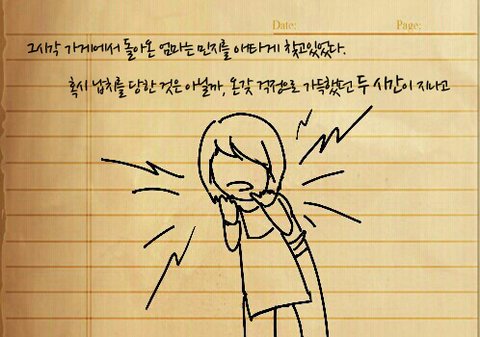 Date: Page:
그시각 가게에서 돌아온 엄마는 민지를 애타게 찾고있었다.
혹시 납치를 당한 것은 아닐까, 온갖 걱정으로 가득했고 두 시간이 지나고